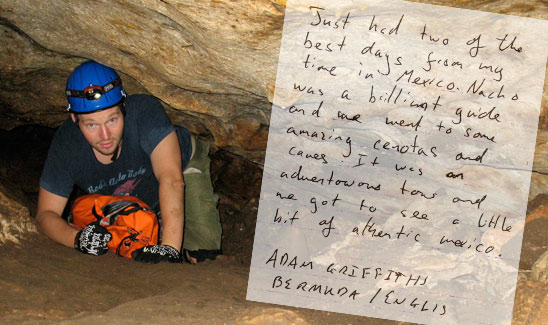 Just had two of the
best days from my
time in Mexico. Nacho
was a brilliant guide
and we went to some
amazing cenotas and
caves. It was an
adventourous tour and
we got to see a little
bit of athentic mexico.
ADAM GRIFFITHS
BERMUDA / ENGLIS